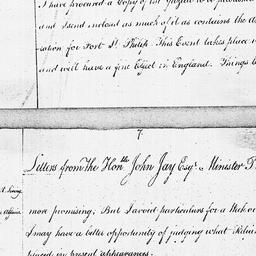 I have procured a Copy of the
and I send inclosed as much of it as contains the
ration for Fort St. Philip. This Event takes place
and will have a fine Effect in England. Things
7.
Letters from the Honble John Jay Esqr. Minister
more promising; But I avoid particulars for a
I may have a better opportunity of judging what
present appearances.